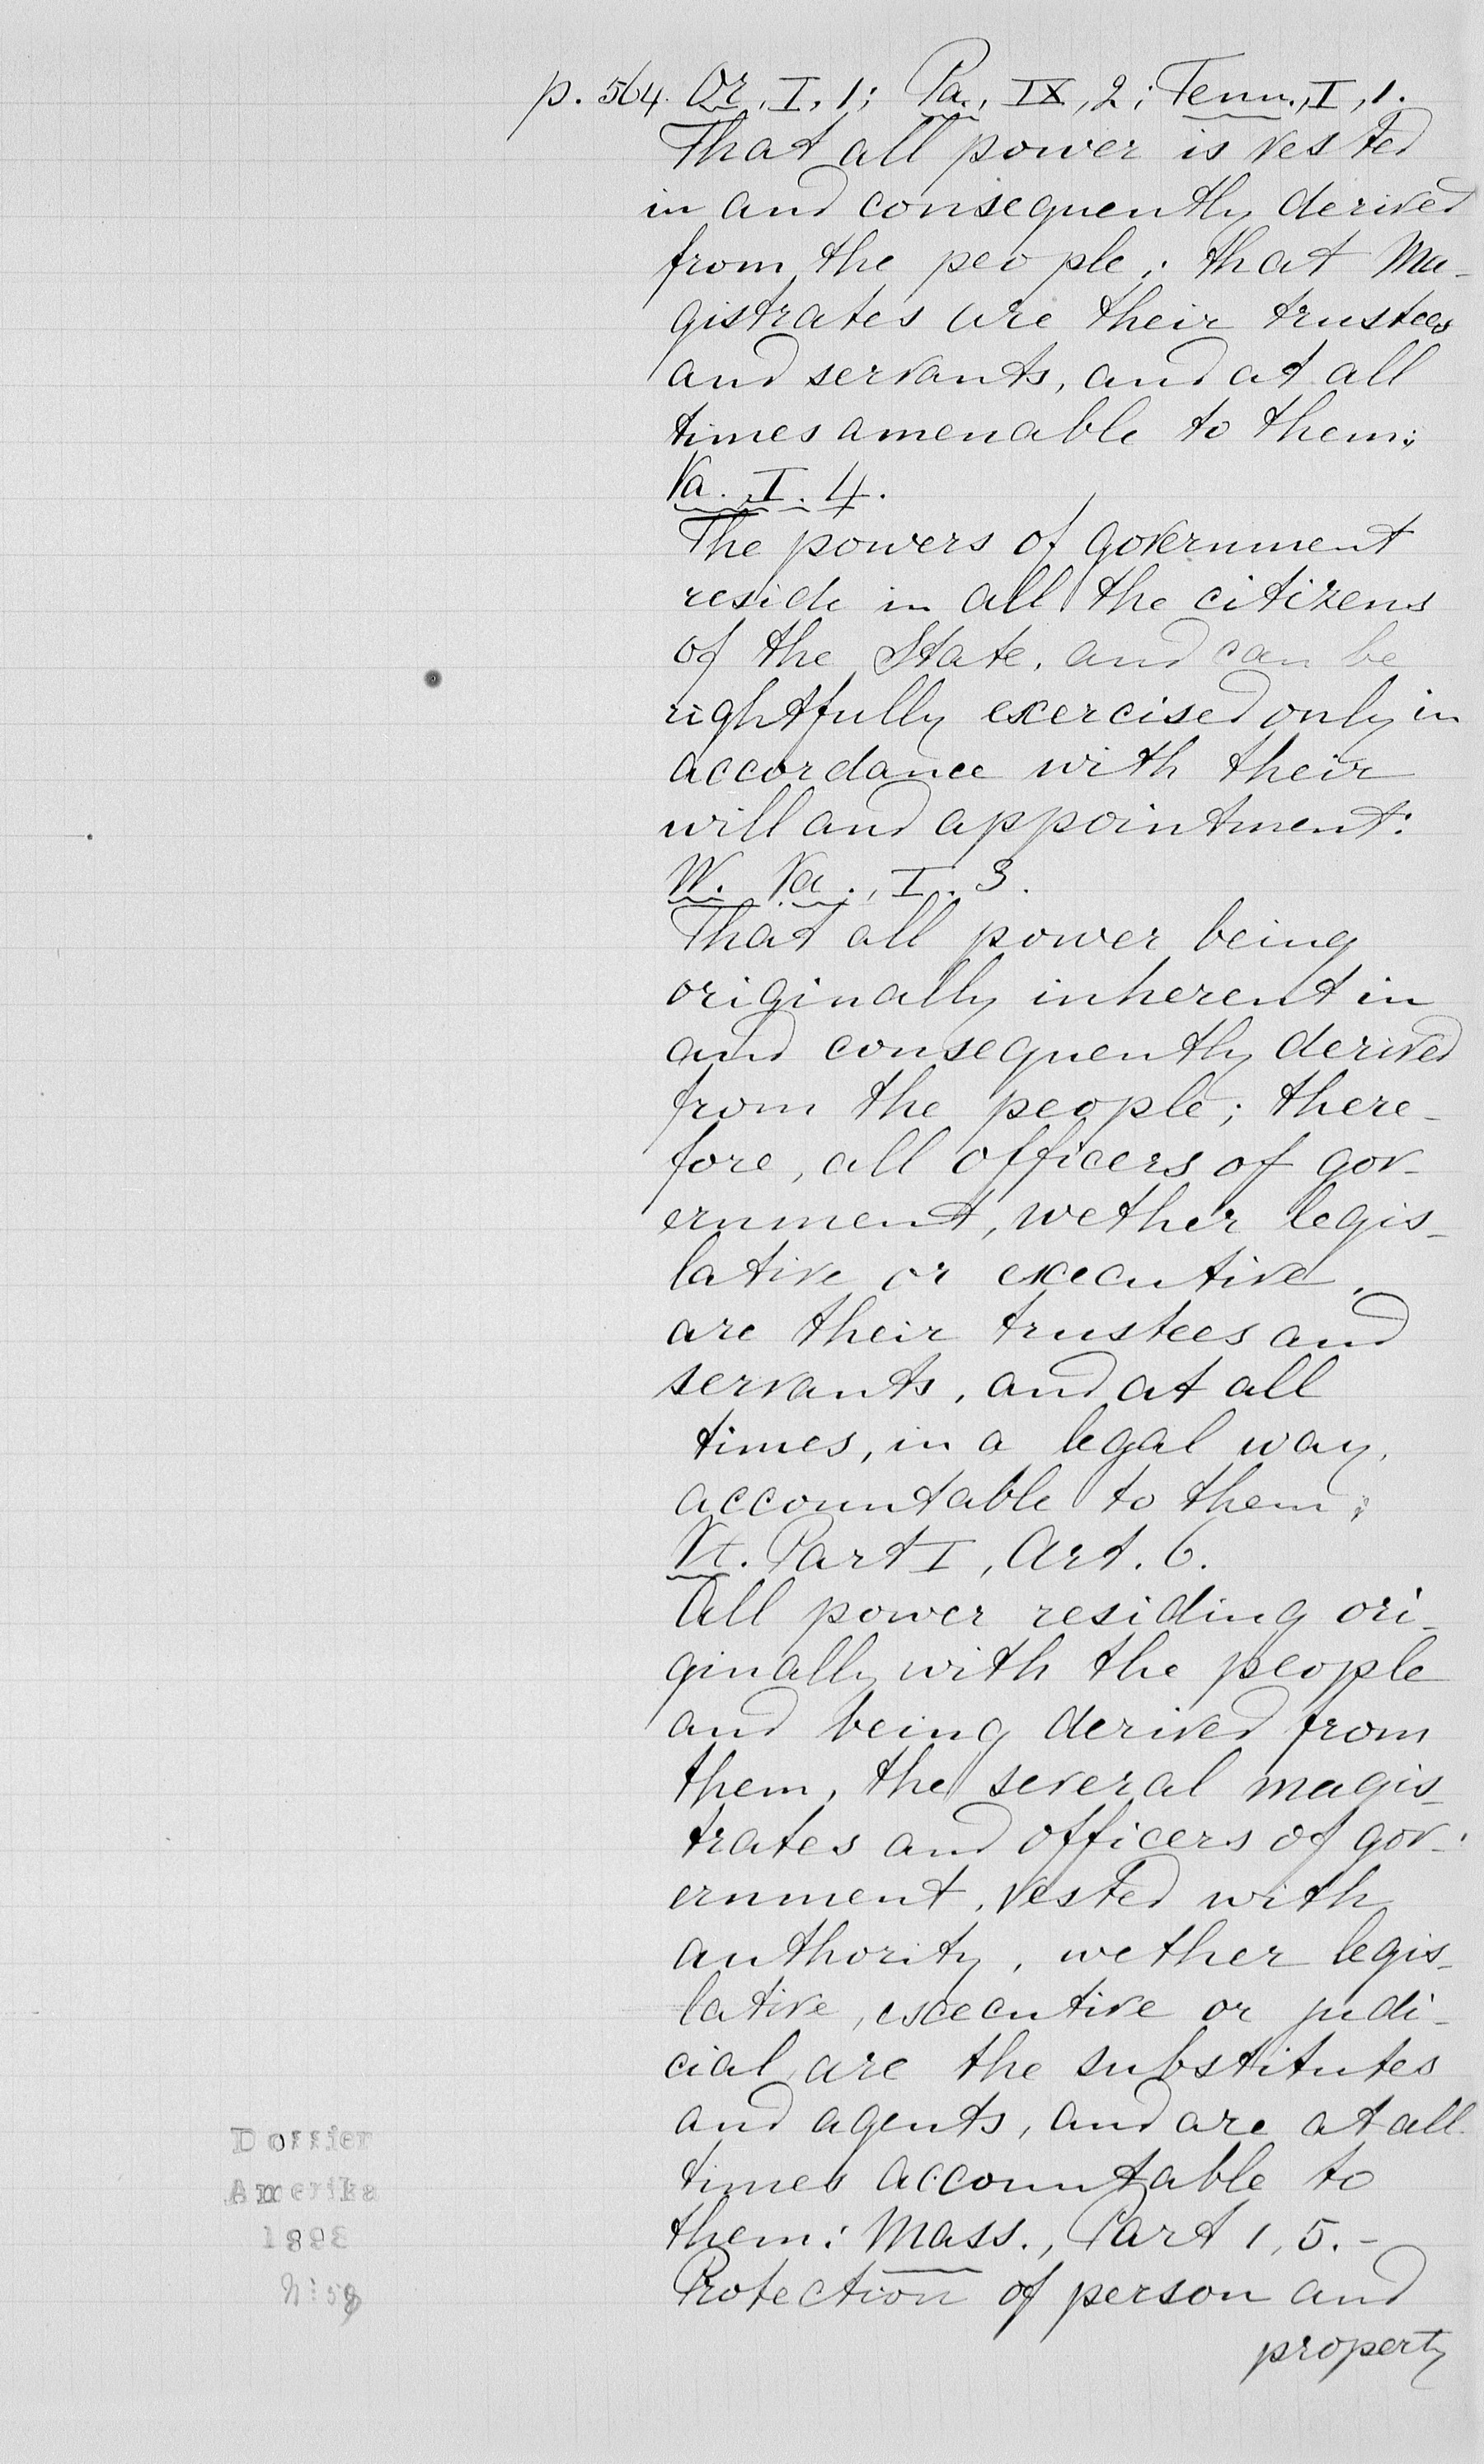 p. 564. Or, I, 1; Pa., IX, 2; Tenn., I, 1.
That all power is vested
in and consequently derived
from the people; that Ma-
gistrates are their trustees
and servants, and at all
times amenable to them:
Va. I. 4.
The powers of government
reside in all the citizens
of the State, and can be
rightfully exercised only in
accordance with their
will and appointment:
W. Va., I. 3.
That all power being
originally inherent in
and consequently derived
from the people; there-
fore, all officers of gov-
ernment, wether legis-
lative or executive,
are their trustees and
servants, and at all
times, in a legal way,
accountable to them;
Vt. Part I, Art. 6.
All power residing ori-
ginally with the people
and being derived from
them, the several magis-
trates and officers of gov-
ernment, vested with
authority, wether legis-
lative, executive or judi-
cial, are the substitutes
and agents, and are at all
times accountable to
them: Mass., Part 1, 5.-
Protection of person and
property
Dossier
Amerika
1898
N: 59